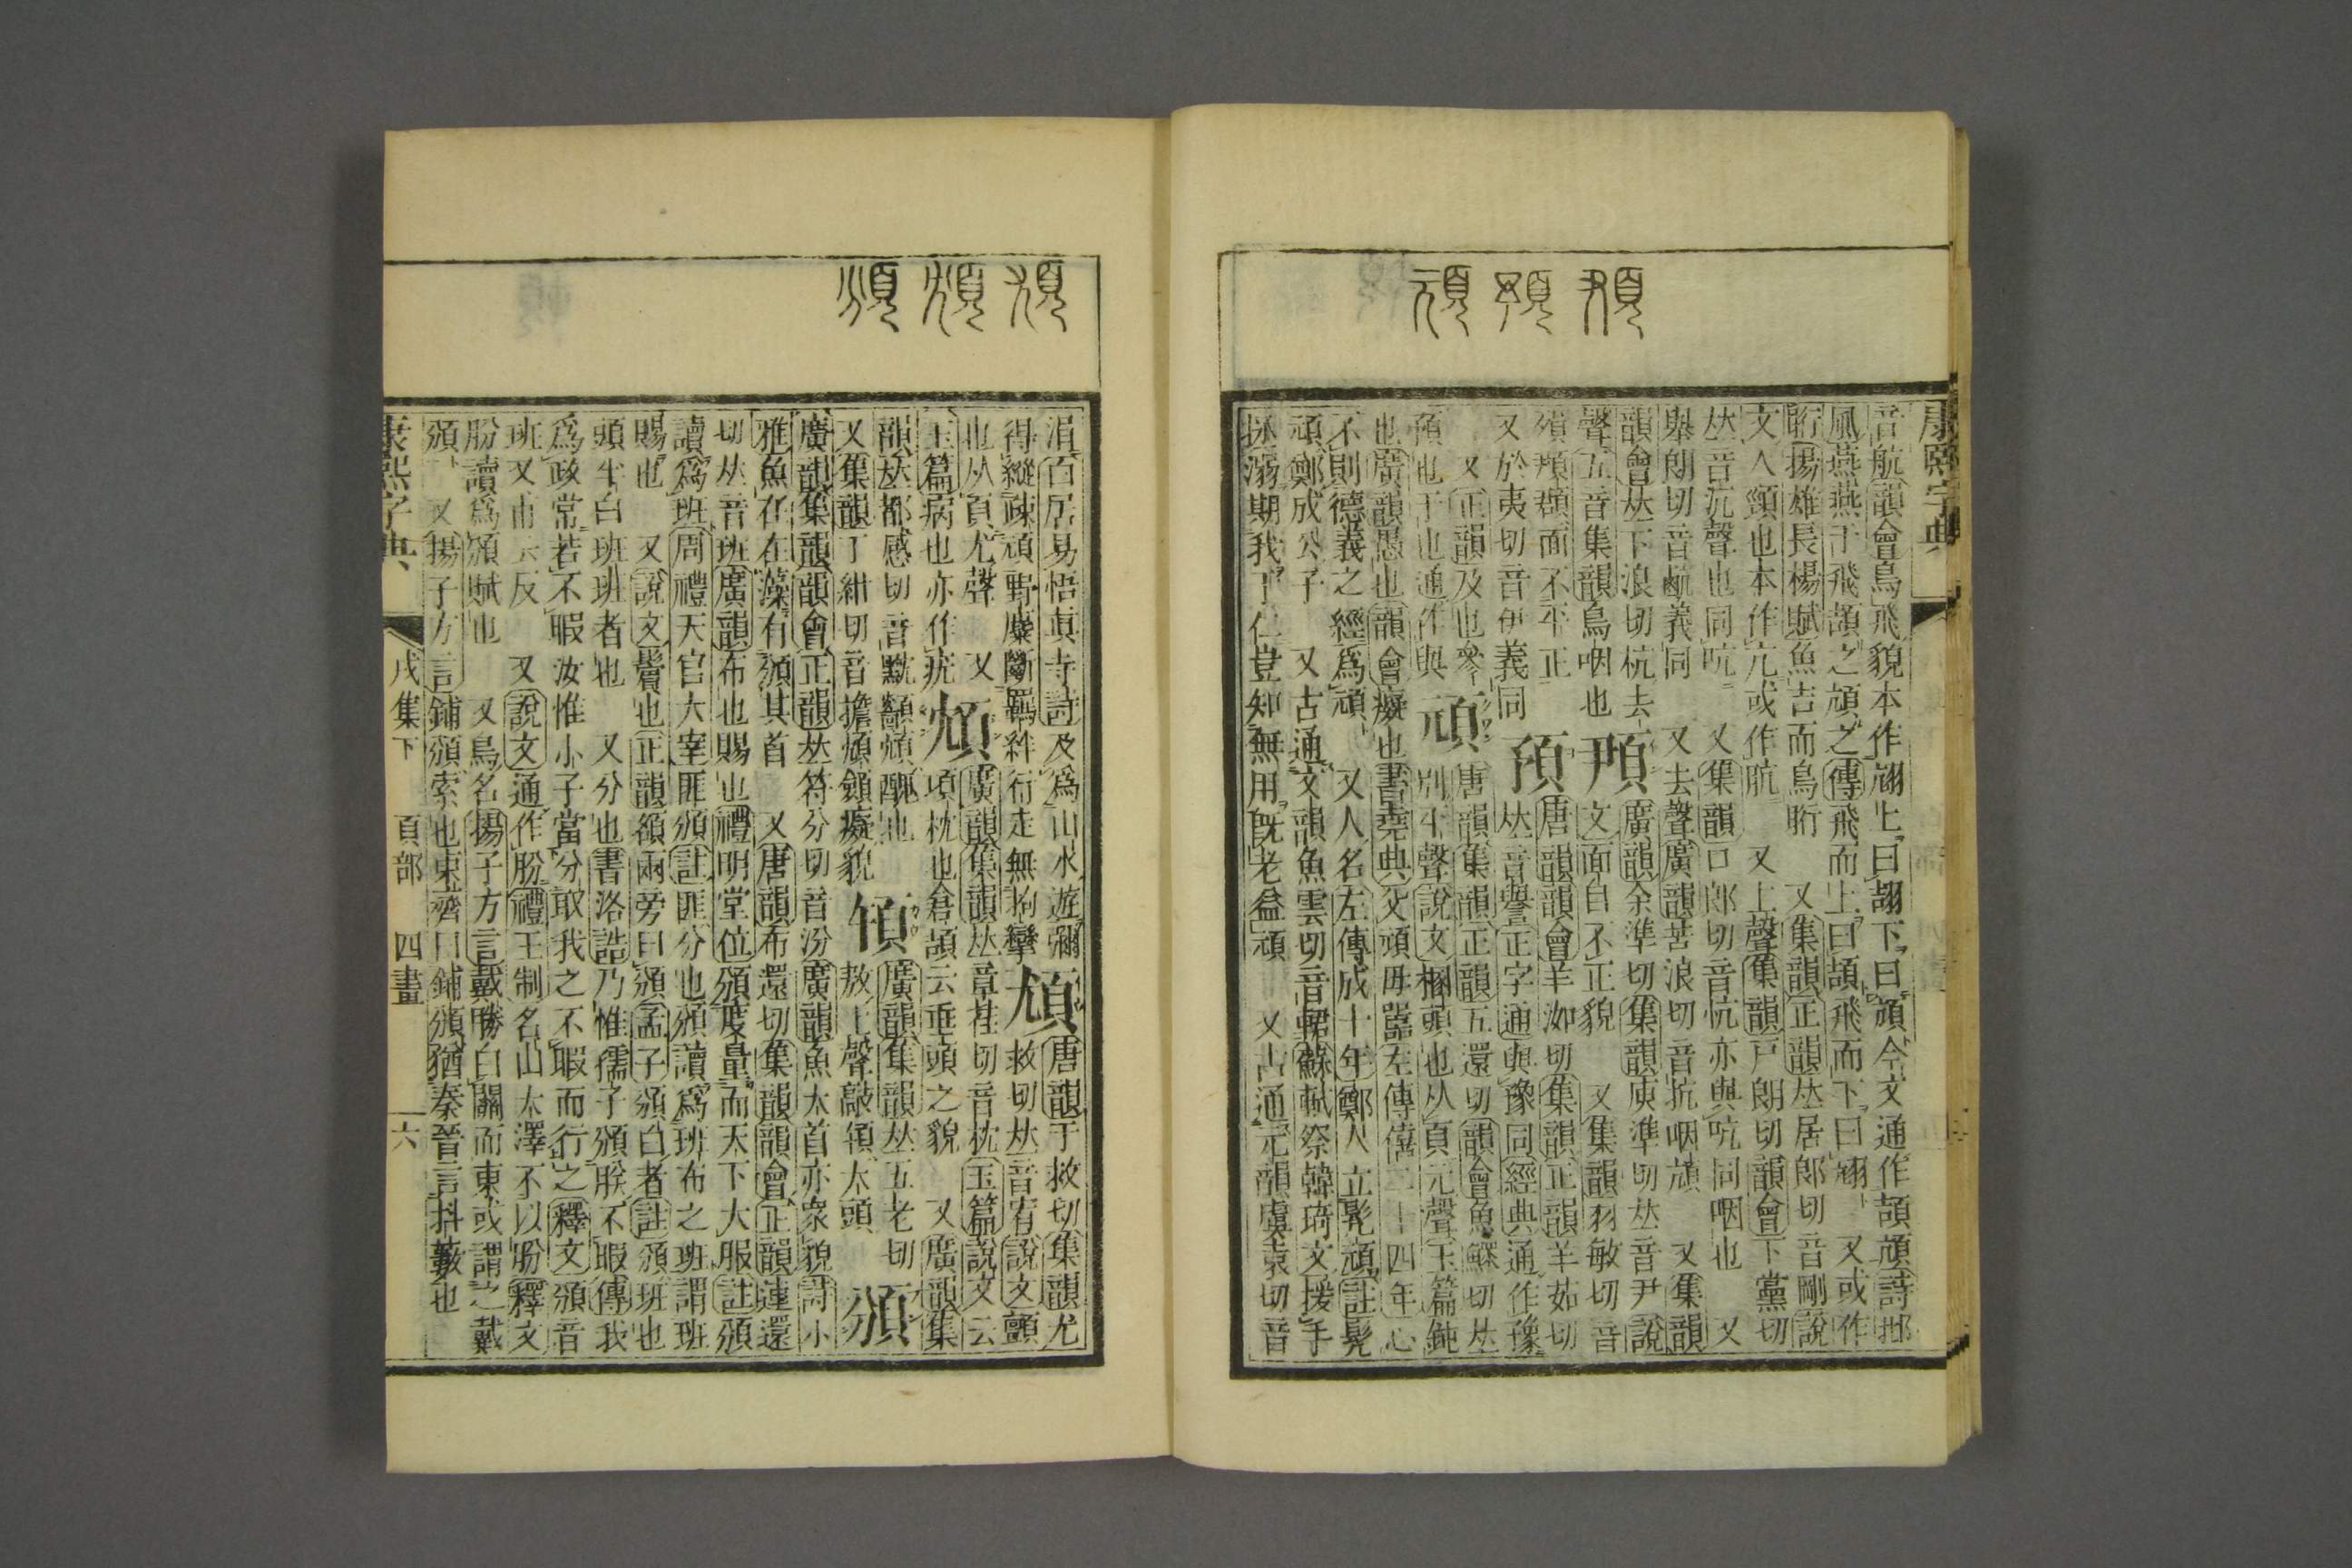 康熙字典
音航韻會鳥飛貌本作翓上曰翓下曰頏今文通作頡頏詩邶
風燕燕于飛頡之頏之傳飛而上曰頡飛而下曰頏 又或作
䀪揚雄長楊賦魚吉而鳥䀪 又集韻正韻𠀤居郎切音剛說
文人頸也本作亢或作肮 又上聲集韻戸朗切韻會下黨切
𠀤音沆聲也同吭 又集韻口郎切音忼亦與吭同咽也 又
舉朗切音䴚義同 又去聲廣韻苦浪切音抗咽頏 又集韻
韻會𠀤下浪切杭去聲五音集韻鳥咽也
䪳 廣韻余準切集韻庾準切𠀤音尹說文面白不正貌 又集韻羽敏切音殞頵䫟面不平正
又於夷切音伊義同
預 唐韻韻會羊洳切集韻正韻羊茹切𠀤音譽正字通與豫同經典通作豫
又正韻及也參預也干也通作與
頑 唐韻集韻正韻五還切韻會魚鰥切𠀤刖平聲說文㮯頭也从頁元聲玉篇鈍
也廣韻愚也韻會癡也書堯典父頑母嚚左傳僖二十四年心
不則德義之經爲頑 又人名左傳成十年鄭人立髠頑註髠
頑鄭成公子 又古通文韻魚雲切音輑蘇軾祭韓琦文援手
拯溺期我于仁豈知無用旣老益頑 又古通元韻虞袁切音
湒百居易悟眞寺詩及爲山水遊彌
得縱疎頑野麋斷羈絆行走無拘攣
頄 唐韻于救切集韻尤救切𠀤音宥說文顫
也从頁尤聲 又玉篇病也亦作疣
䪴 廣韻集韻𠀤章荏切音枕玉篇說文云項枕也倉頡云垂頭之貌 又廣韻集
韻𠀤都感切音黕顲䪴醜也
又集韻丁紺切音擔䪴顉癡貌
䪵 廣韻集韻𠀤五老切敖上聲䯨䪵大頭
頒 廣韻集韻韻會正韻𠀤符分切音汾廣韻魚大首亦衆貌詩小
雅魚在在藻有頒其首 又唐韻布還切集韻韻會正韻逋還
切𠀤音班廣韻布也賜也禮明堂位頒度量而天下大服註頒
讀爲班周禮天官大宰匪頒註匪分也頒讀爲班布之班謂班
賜也 又說文鬢也正韻額兩旁曰頒孟子頒白者註頒班也
頭半白班班者也 又分也書洛誥乃惟孺子頒朕不暇傳我
爲政常若不暇汝惟小子當分取我之不暇而行之釋文頒音
班又甫云反 又說文通作朌禮王制名山大澤不以朌釋文
朌讀爲頒賦也 又鳥名揚子方言戴勝自關而東或謂之戴
頒 又揚子方言鋪頒索也東齊曰鋪頒猶秦晉言抖藪也
康熙字典 戌集下 頁部 四畫 一六